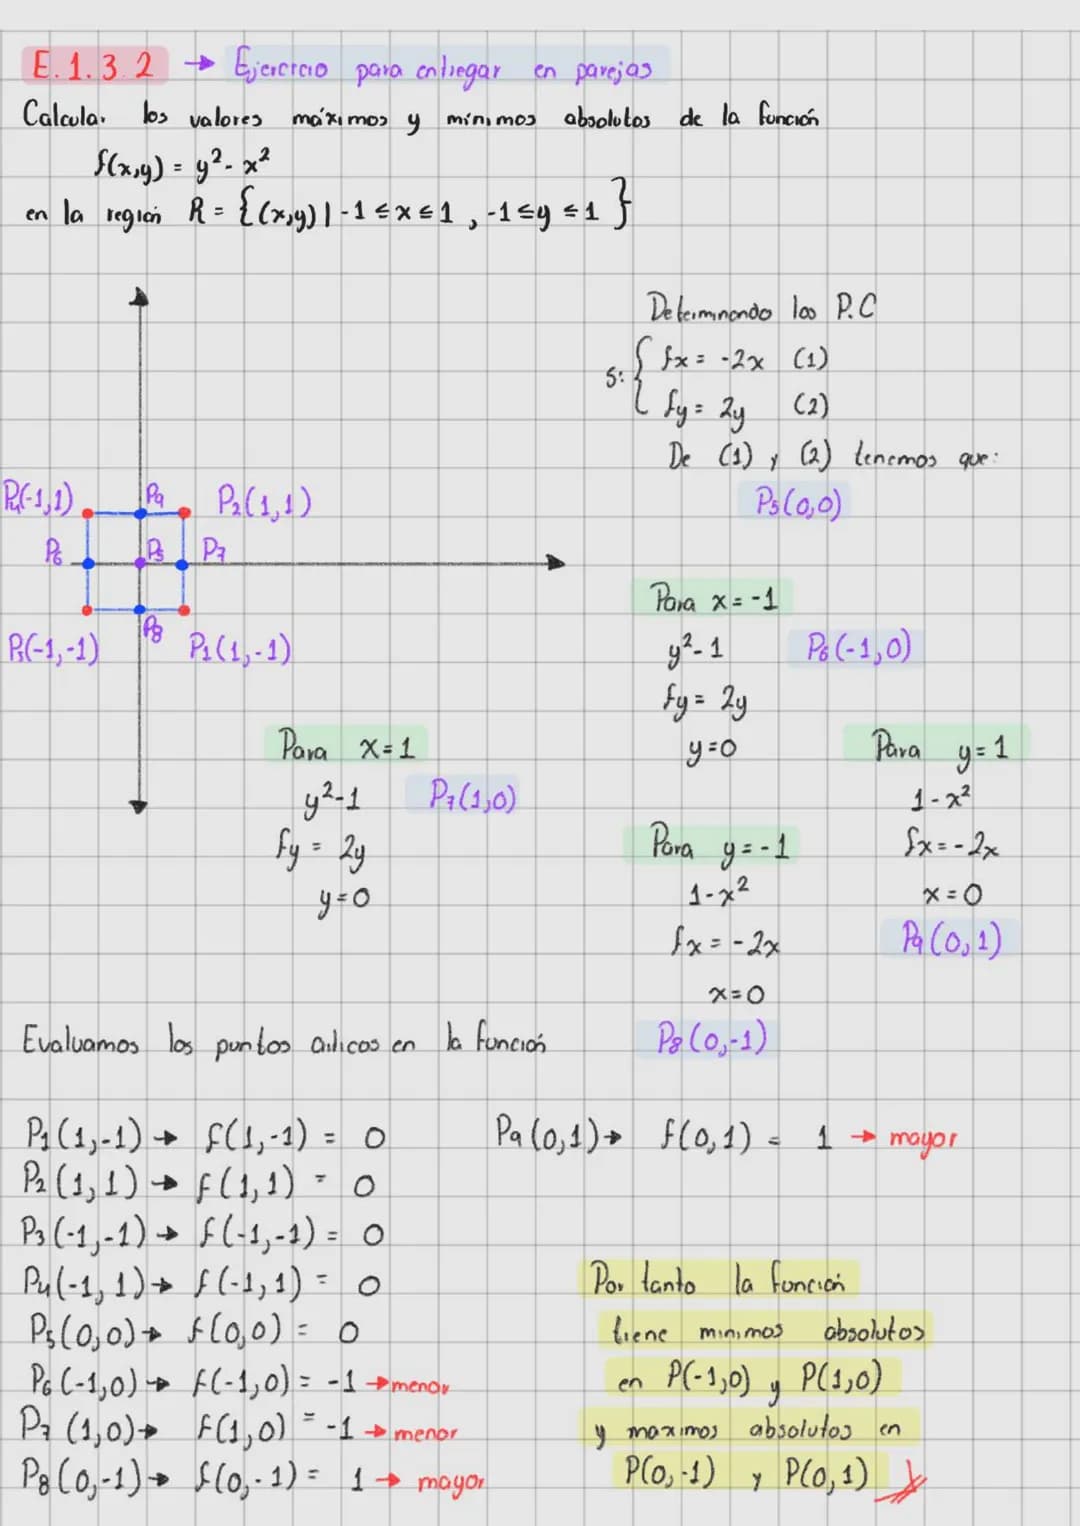 E.1.3.2 → Ejercicio para entregar en parejas
Calcular los valores máximos y mínimos absolutos de la función
f(x,y) = y² - x²
en la región R = {(x,y) | -1 ≤ x ≤ 1 , -1 ≤ y ≤ 1}
Determinando los P.C
S: { fx = -2x (1)
fy = 2y (2)
De (1) y (2) tenemos que:
P5(0,0)
P4(-1,1) P9 P2(1,1)
P6 P5 P7
P3(-1,-1) P8 P1(1,-1)
Para x = -1
y² - 1 P6(-1,0)
fy = 2y
y = 0
Para x = 1
y² - 1 P7(1,0)
fy = 2y
y = 0
Para y = -1
1 - x²
fx = -2x
x = 0
P8(0,-1)
Para y = 1
1 - x²
fx = -2x
x = 0
P9(0,1)
Evaluamos los puntos críticos en la función
P1(1,-1) → f(1,-1) = 0
P2(1,1) → f(1,1) = 0
P3(-1,-1) → f(-1,-1) = 0
P4(-1,1) → f(-1,1) = 0
P5(0,0) → f(0,0) = 0
P6(-1,0) → f(-1,0) = -1 → menor
P7(1,0) → f(1,0) = -1 → menor
P8(0,-1) → f(0,-1) = 1 → mayor
P9(0,1) → f(0,1) = 1 → mayor
Por tanto la función
tiene minimos absolutos
en P(-1,0) y P(1,0)
y maximos absolutos en
P(0,-1) y P(0,1)